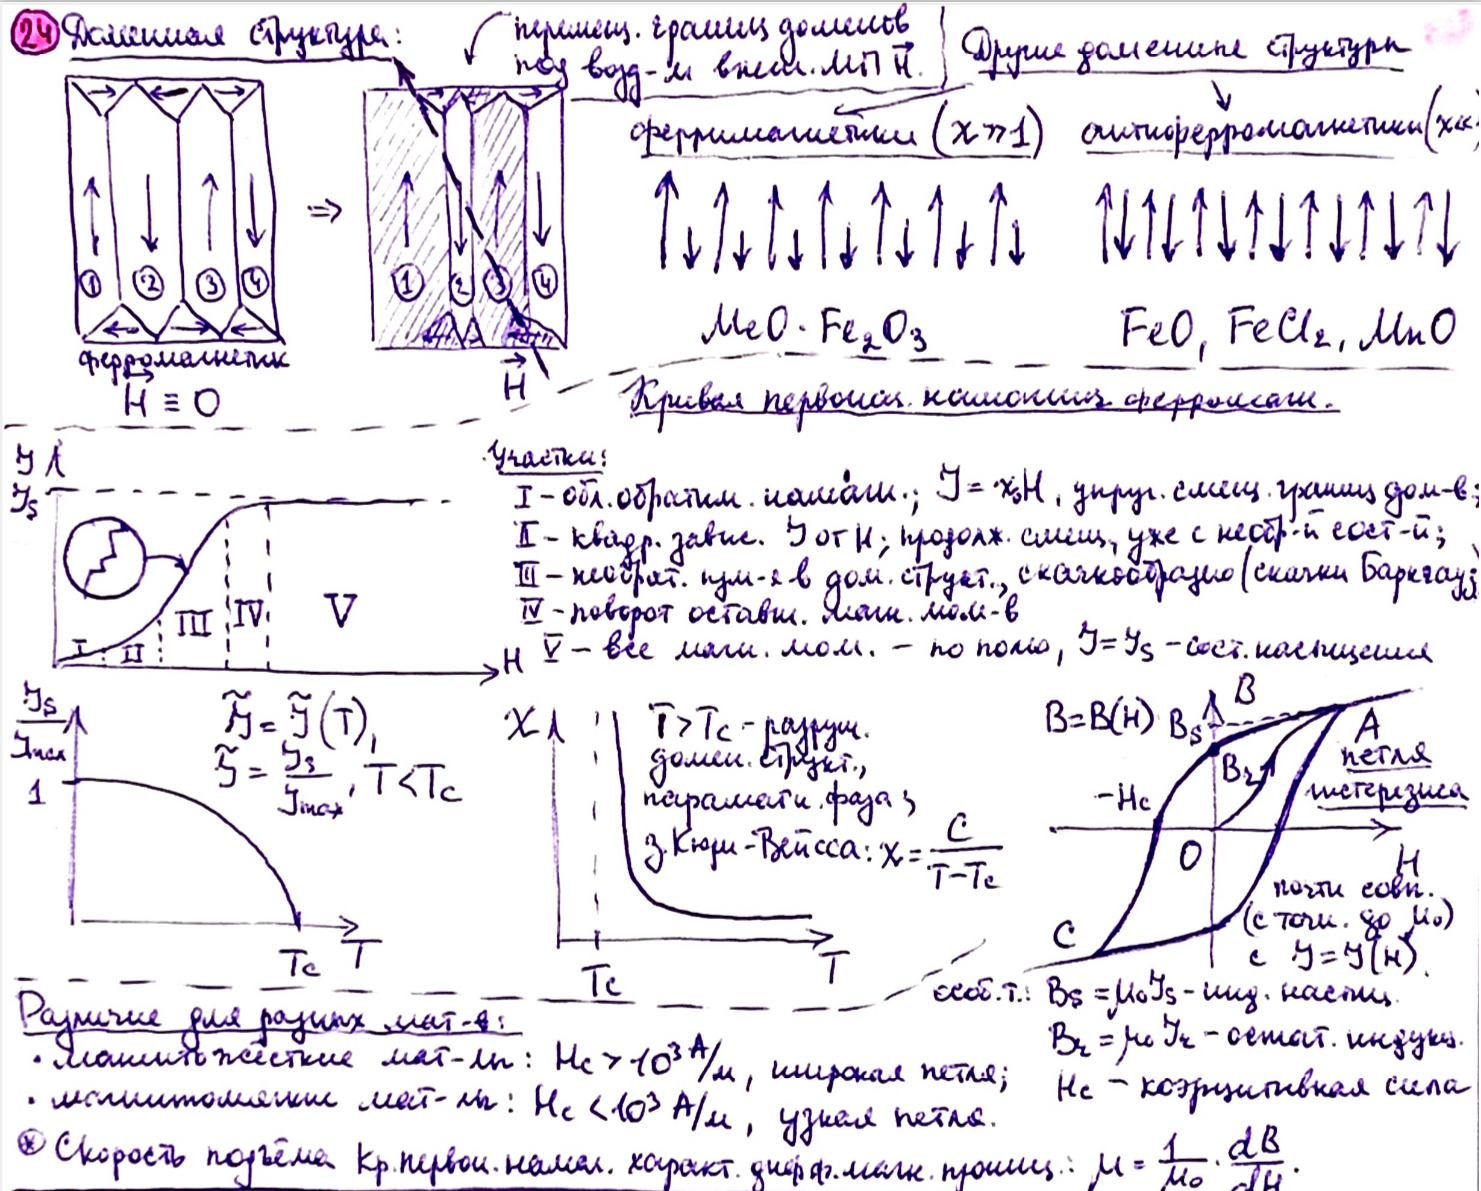 24 Доменная структура:
перемещ. границ доменов
под возд-м внеш. МП H⃗.
Другие доменные структуры
ферримагнетики (χ≫1)
антиферромагнетики (χ≪
① ② ③ ④
⇒
① ② ③ ④
MeO · Fe₂O₃
FeO, FeCl₂, MnO
ферромагнетик
H⃗ ≡ 0
H⃗
Кривая первонач. намагнич. ферромагн.
J
Jₛ
I II III IV V
H
Участки:
I – обл. обратим. намагн.; J = χₛH, упруг. смещ. границ дом-в;
II – квадр. завис. J от H; продолж. смещ., уже с необр-й сост-й;
III – необрат. изм-я в дом. структ., скачкообразно (скачки Баркгауз
IV – поворот оставш. магн. мом-в
V – все магн. мом. – по полю, J = Jₛ – сост. насыщения
Jₛ/Jmax
1
J̃ = J̃(T),
J̃ = Jₛ/Jmax, T < Tc
Tc T
χ
T > Tc – разруш.
домен. структ.,
парамагн. фаза;
з. Кюри-Вейсса: χ = C/(T−Tc)
Tc T
B = B(H)
B
Bₛ
A
Bᵣ
петля
гистерезиса
−Hc
O
H
C
почти совп.
(с точн. до μ₀)
с J = J(H).
особ. т.: Bₛ = μ₀Jₛ – инд. насыщ.
Bᵣ = μ₀Jᵣ – остат. индукц.
Hc – коэрцитивная сила
Различие для разных мат-в:
· магнитожёсткие мат-лы: Hc > 10³ А/м, широкая петля;
· магнитомягкие мат-лы: Hc < 10³ А/м, узкая петля.
⊛ Скорость подъёма кр. первон. намагн. характ. дифф. магн. прониц.: μ = 1/μ₀ · dB/dH.